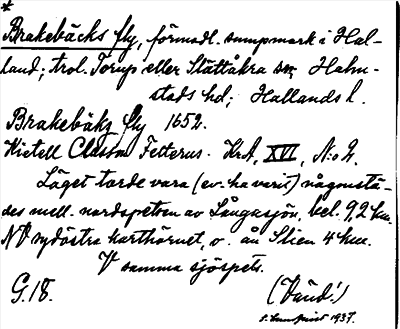 *
Brakebäcks fly, förmodl. sumpmark i Hal-
land; trol. Torup eller Slättåkra sn, Halm-
stads hd; Hallands l.
Brakebäkz fly 1652.
Kietell Classon Felterus. KrA, XVI, N:o 2.
Läget torde vara (ev. ha varit) någonstä-
des mell. nordspetsen av Långasjön, bel. 9,2 km.
NV sydöstra karthörnet, o. ån Slien 4 km.
V samma sjöspets.
G.18. (Vänd!)
1937.